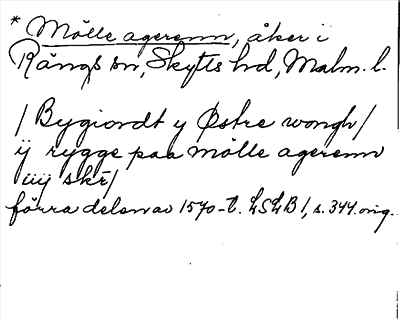 * Mölle agerenn, åker i
Rängs sn, Skytts hd, Malm. l.
/ Bygiordt y Østre wongh /
ÿ rygge paa mölle agerenn
iiiÿ skē /
förra delen av 1570-t. LSLB 1, s. 344. orig.